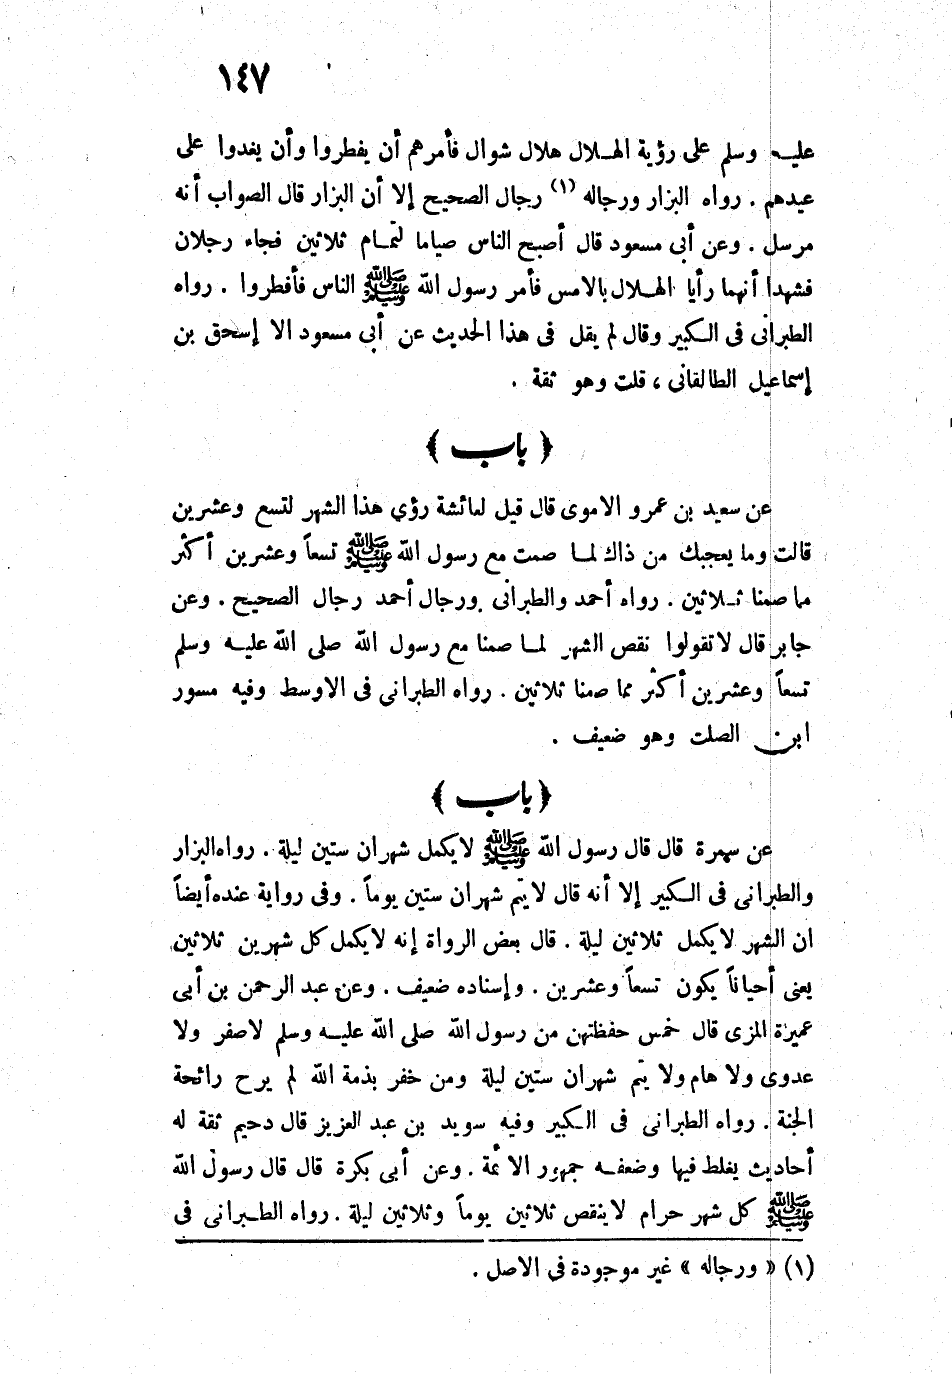 ١٤٧
عليه وسلم على رؤية الهلال هلال شوال فأمرهم أن يفطروا وأن يغدوا على
عيدهم . رواه البزار ورجاله (١) رجال الصحيح إلا أن البزار قال الصواب أنه
مرسل . وعن أبى مسعود قال أصبح الناس صياما لتمام ثلاثين فجاء رجلان
فشهدا أنهما رأيا الهلال بالامس فأمر رسول الله ﷺ الناس فأفطروا . رواه
الطبرانى فى الكبير وقال لم يقل فى هذا الحديث عن أبى مسعود الا إسحق بن
إسماعيل الطالقانى ، قلت وهو ثقة .
﴿ باب ﴾
عن سعيد بن عمرو الاموى قال قيل لعائشة رؤي هذا الشهر لتسع وعشرين
قالت وما يعجبك من ذاك لما صمت مع رسول الله ﷺ تسعاً وعشرين أكثر
مما صمنا ثلاثين . رواه أحمد والطبرانى ورجال أحمد رجال الصحيح . وعن
جابر قال لا تقولوا نقص الشهر لما صمنا مع رسول الله صلى الله عليه وسلم
تسعاً وعشرين أكثر مما صمنا ثلاثين . رواه الطبرانى فى الاوسط وفيه مسور
ابن الصلت وهو ضعيف .
﴿ باب ﴾
عن سمرة قال قال رسول الله ﷺ لا يكمل شهران ستين ليلة . رواه البزار
والطبرانى فى الكبير إلا أنه قال لا يتم شهران ستين يوماً . وفى رواية عنده أيضاً
ان الشهر لا يكمل ثلاثين ليلة . قال بعض الرواة إنه لا يكمل كل شهرين ثلاثين
يعنى أحياناً يكون تسعاً وعشرين . وإسناده ضعيف . وعن عبد الرحمن بن أبى
عميرة المزى قال خمس حفظتهن من رسول الله صلى الله عليه وسلم لا صفر ولا
عدوى ولا هام ولا يتم شهران ستين ليلة ومن خفر بذمة الله لم يرح رائحة
الجنة . رواه الطبرانى فى الكبير وفيه سويد بن عبد العزيز قال دحيم ثقة له
أحاديث يغلط فيها وضعفه جمهور الائمة . وعن أبى بكرة قال قال رسول الله
ﷺ كل شهر حرام لا ينقص ثلاثين يوماً وثلاثين ليلة . رواه الطبرانى فى
(١) « ورجاله » غير موجودة فى الاصل .